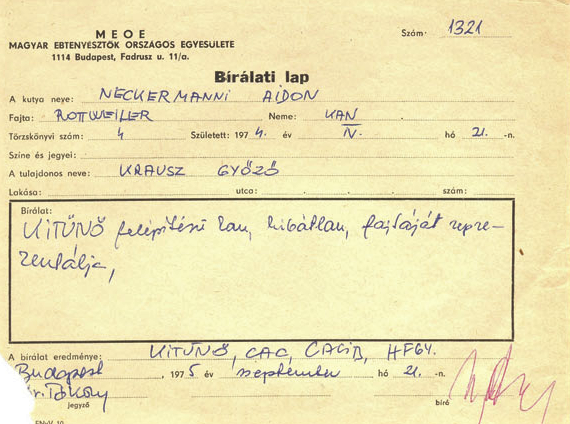 MEOE
MAGYAR EBTENYÉSZTŐK ORSZÁGOS EGYESÜLETE
1114 Budapest, Fadrusz u. 11/a.
Szám· 1321
Bírálati lap
A kutya neve: NECKERMANNI AIDON
Fajta: ROTTWEILER Neme: KAN
Törzskönyvi szám: 4 Született: 1974. év IV. hó 21. -n.
Színe és jegyei:
A tulajdonos neve: KRAUSZ GYŐZŐ
Lakása: utca: szám:
Bírálat:
KITŰNŐ felépítésű kan, hibátlan, fajtáját repre-
zentálja,
A bírálat eredménye: KITŰNŐ, CAC, CACIB, HFGY.
Budapest, 1975 év szeptember hó 21. -n.
jegyző bíró